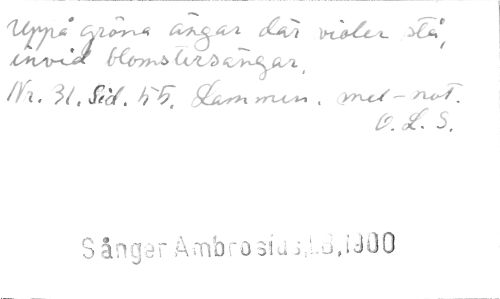 Uppå gröna ängar där violer stå,
invid blomstersängar.
Nr. 31. Sid. 55. Lammen. mel-not.
O. L. S.
Sånger Ambrosius, 1900